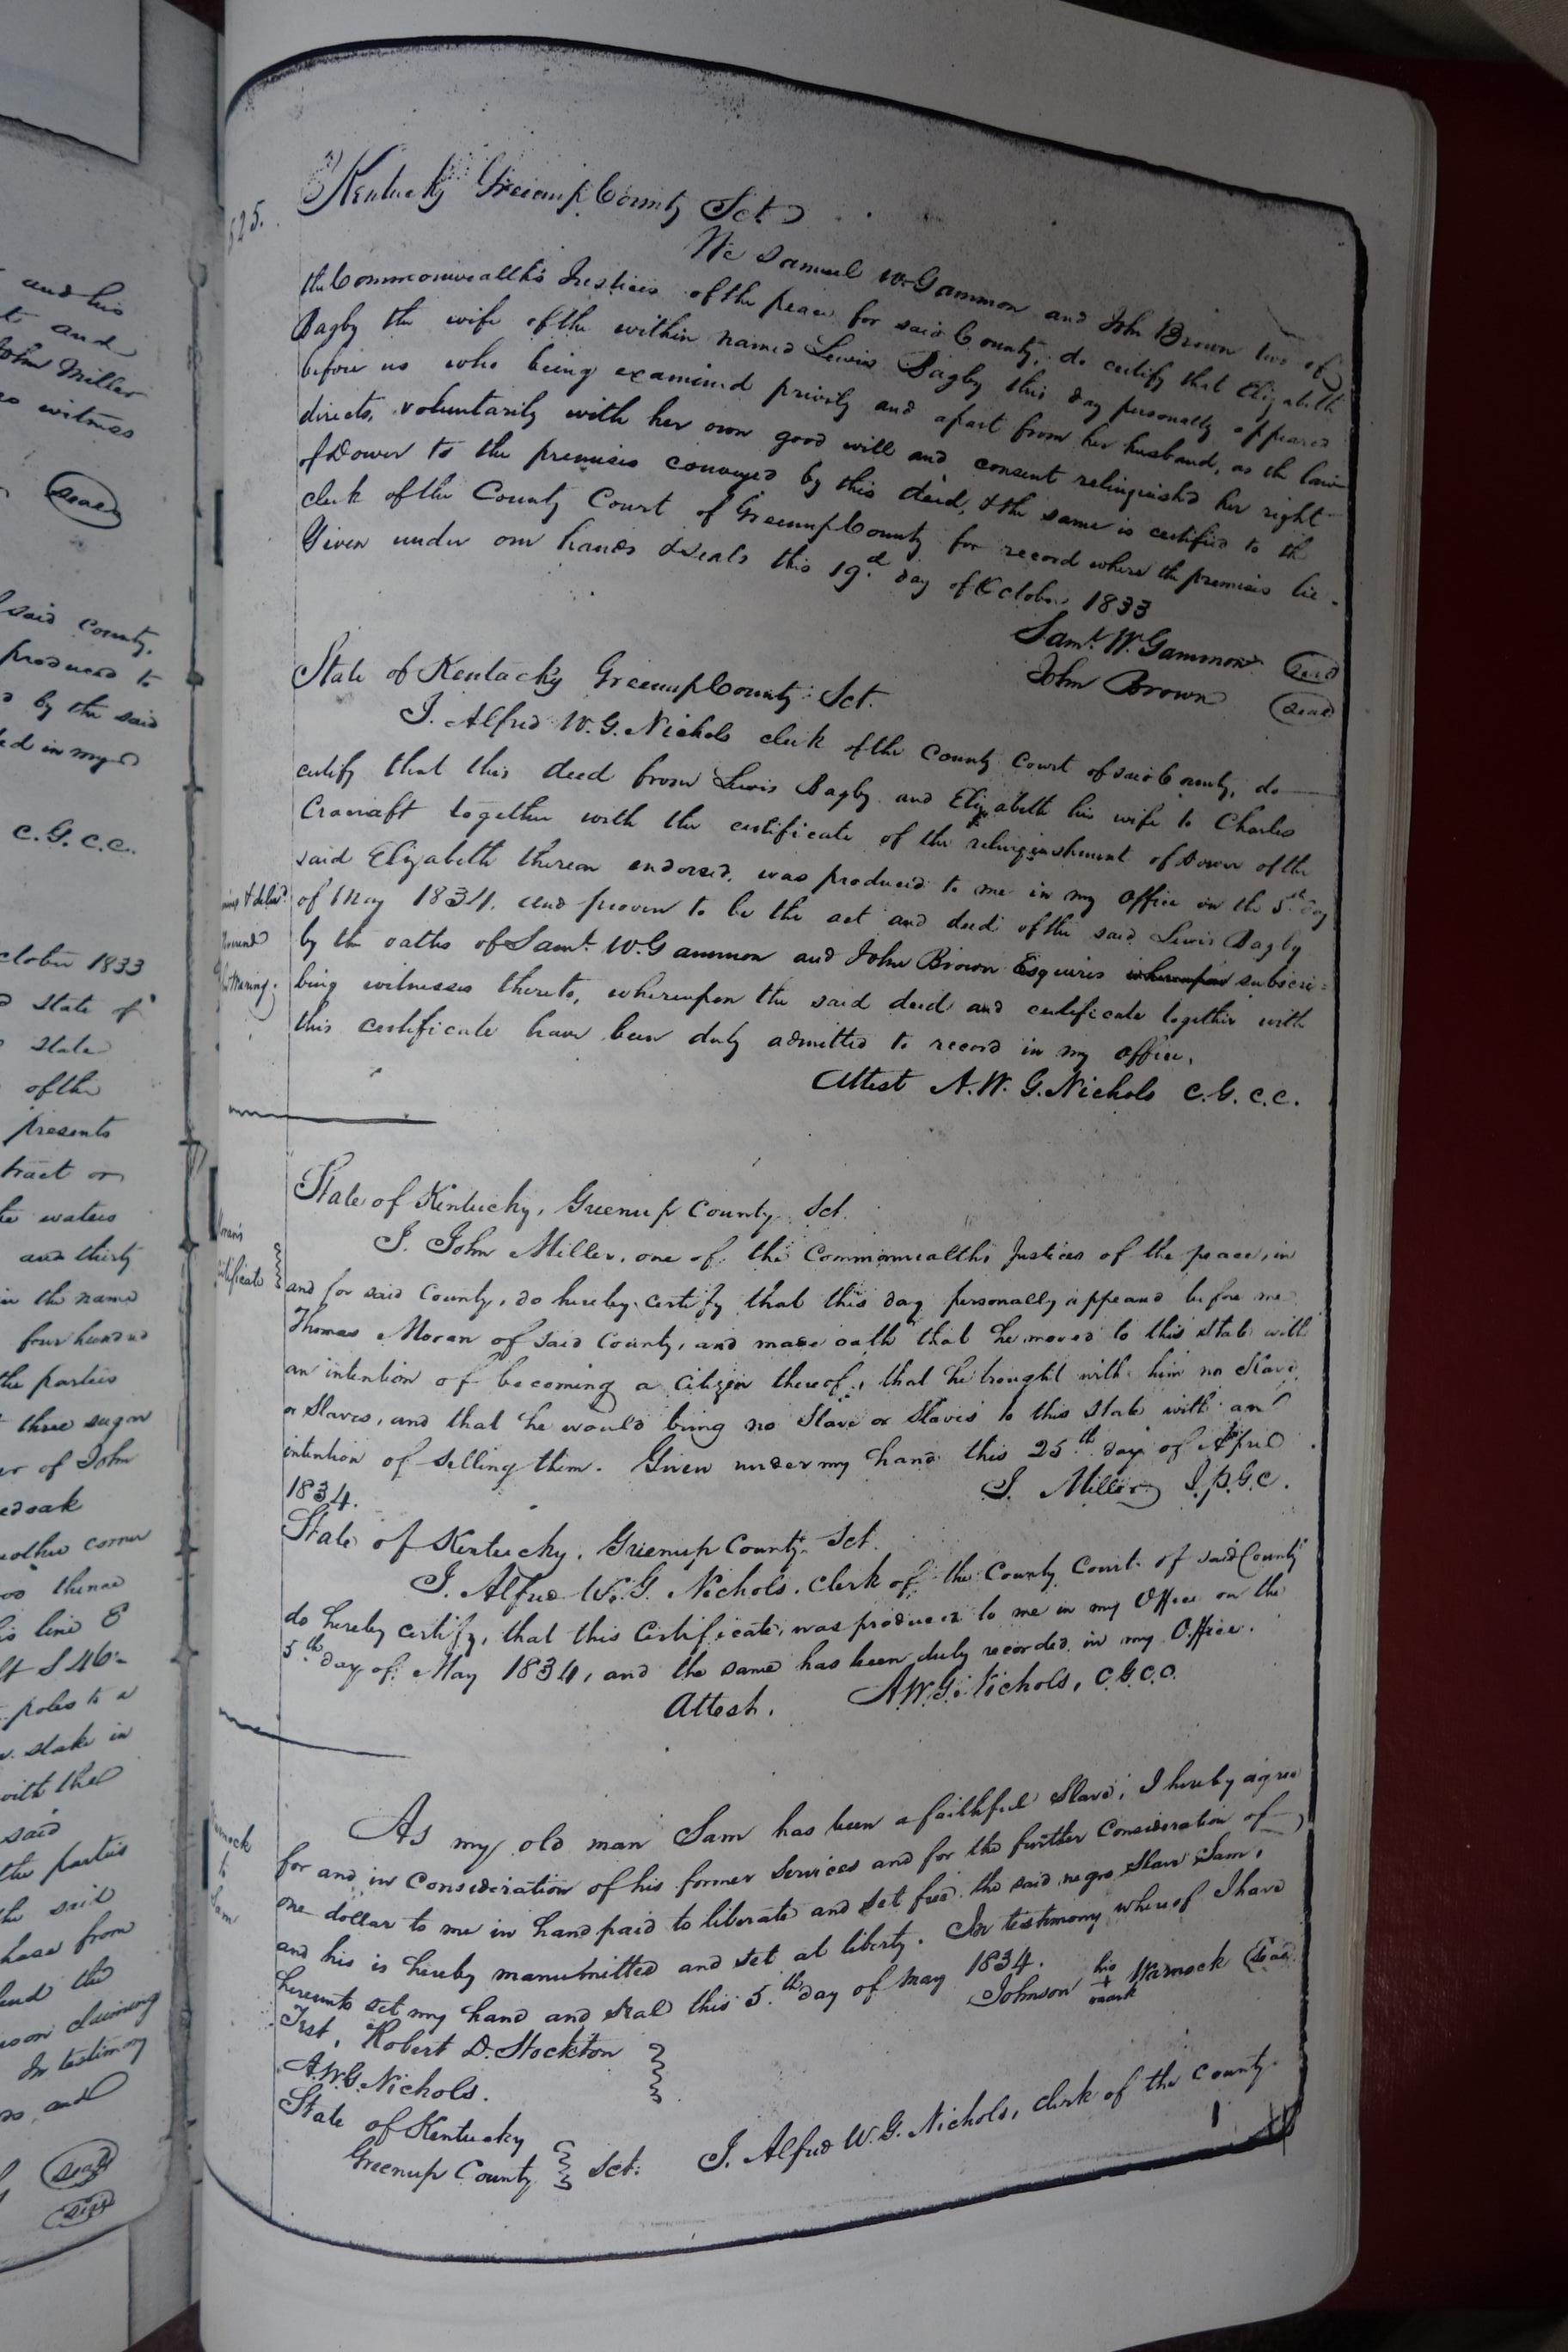 and his
and
John Miller
witness
Seal
said County,
produced to
by the said
in my
C.G.C.C.
October 1833
State of
State
of the
presents
tract or
waters
and thirty
in the name
four hundred
the parties
three sugar
of John
another corner
thence
line E
S 46
poles to a
stake in
with the
said
the parties
the said
from
and the
claiming
In testimony
and
Seal
Seal
525.
Kentucky Greenup County Sct
We Samuel W. Gammon and John Brown two of
the Commonwealth's Justices of the peace for said County, do certify that Elizabeth
Bagby the wife of the within named Lewis Bagby this day personally appeared
before us who being examined privily and apart from her husband, as the law
directs, voluntarily with her own good will and consent relinquished her right
of Dower to the premises conveyed by this deed, & the same is certified to the
clerk of the County Court of Greenup County for record where the premises lie.
Given under our hands & seals this 19.d day of October 1833
Saml. W. Gammon Seal
John Brown Seal
State of Kentucky Greenup County Sct.
I. Alfred W. G. Nichols clerk of the County Court of said County, do
certify that this deed from Lewis Bagby and Elizabeth his wife to Charles
Cracraft together with the certificate of the relinquishment of Dower of the
said Elizabeth thereon endorsed, was produced to me in my office on the 5th day
of May 1834, and proven to be the act and deed of the said Lewis Bagby
by the oaths of Saml. W. Gammon and John Brown Esquires whereupon subscri=
bing witnesses thereto, whereupon the said deed and certificate together with
this certificate have been duly admitted to record in my office.
Attest A. W. G. Nichols C.G.C.C.
State of Kentucky, Greenup County Sct.
I. John Miller, one of the Commonwealths Justices of the peace, in
and for said County, do hereby certify that this day personally appeand before me
Thomas Moran of said County, and made oath that he moved to this State with
an intention of becoming a Citizen thereof, that he brought with him no Slave
or Slaves, and that he would bring no Slave or Slaves to this State with an
intention of selling them. Given under my hand this 25th day of April
1834.
J. Miller J.P.G.C.
State of Kentucky, Greenup County Sct.
I. Alfred W. G. Nichols, Clerk of the County Court of said County
do hereby certify, that this Certificate, was produced to me in my Office on the
5th day of May 1834, and the same has been duly recorded in my Office.
Attest. A.W.G. Nichols, C.G.C.C.
As my old man Sam has been a faithful Slave, I hereby agree
for and in Consideration of his former Services and for the further Consideration of
one dollar to me in hand paid to liberate and set free the said negro Slave Sam,
and his is hereby manumitted and set at liberty. In testimony whereof I have
hereunto set my hand and seal this 5.th day of May 1834.
Johnson his + mark Warnock Seal
Test, Robert D. Stockton
A.W.G. Nichols.
State of Kentucky
Greenup County Sct. I. Alfred W. G. Nichols, Clerk of the County